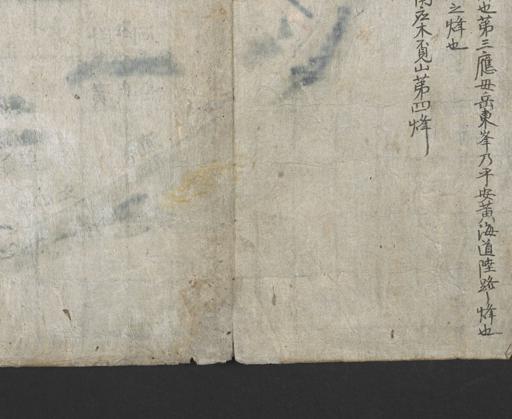 也第三應毋岳東峯乃平安黃海道陸路烽也
之烽也
南應木覓山第四烽